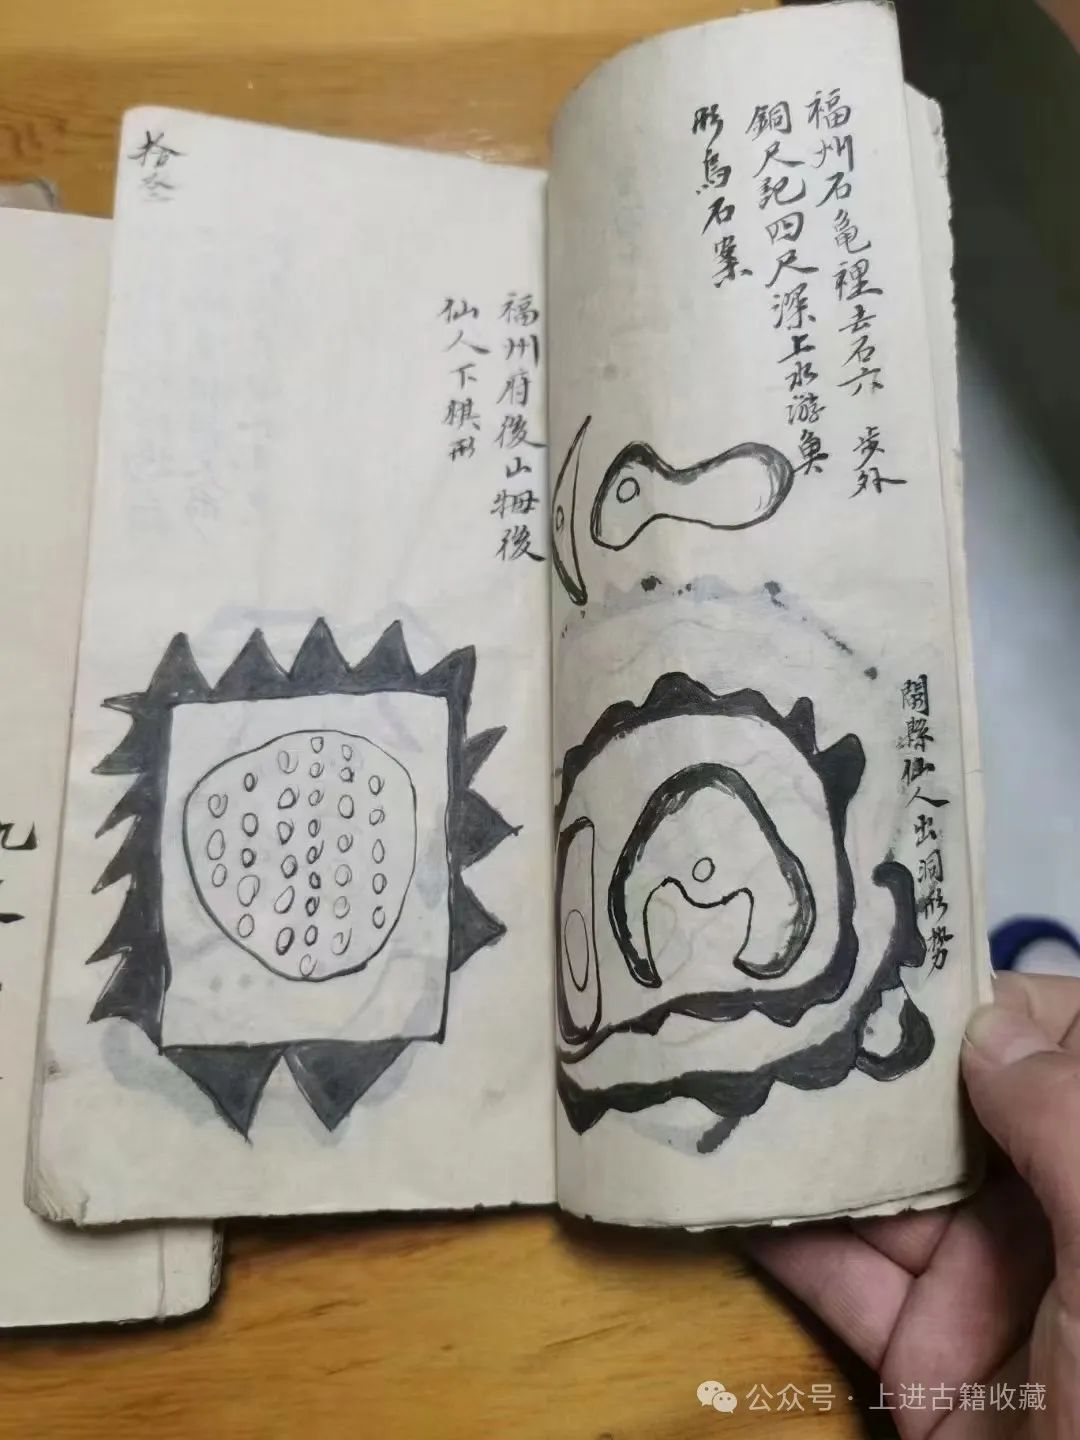 福州石亀裡去石六步外
銅尺記四尺深上水游魚
形烏石案
閩縣仙人出洞形势
福州府後山
後
仙人下棋形
拾叁
九
公众号 · 上进古籍收藏